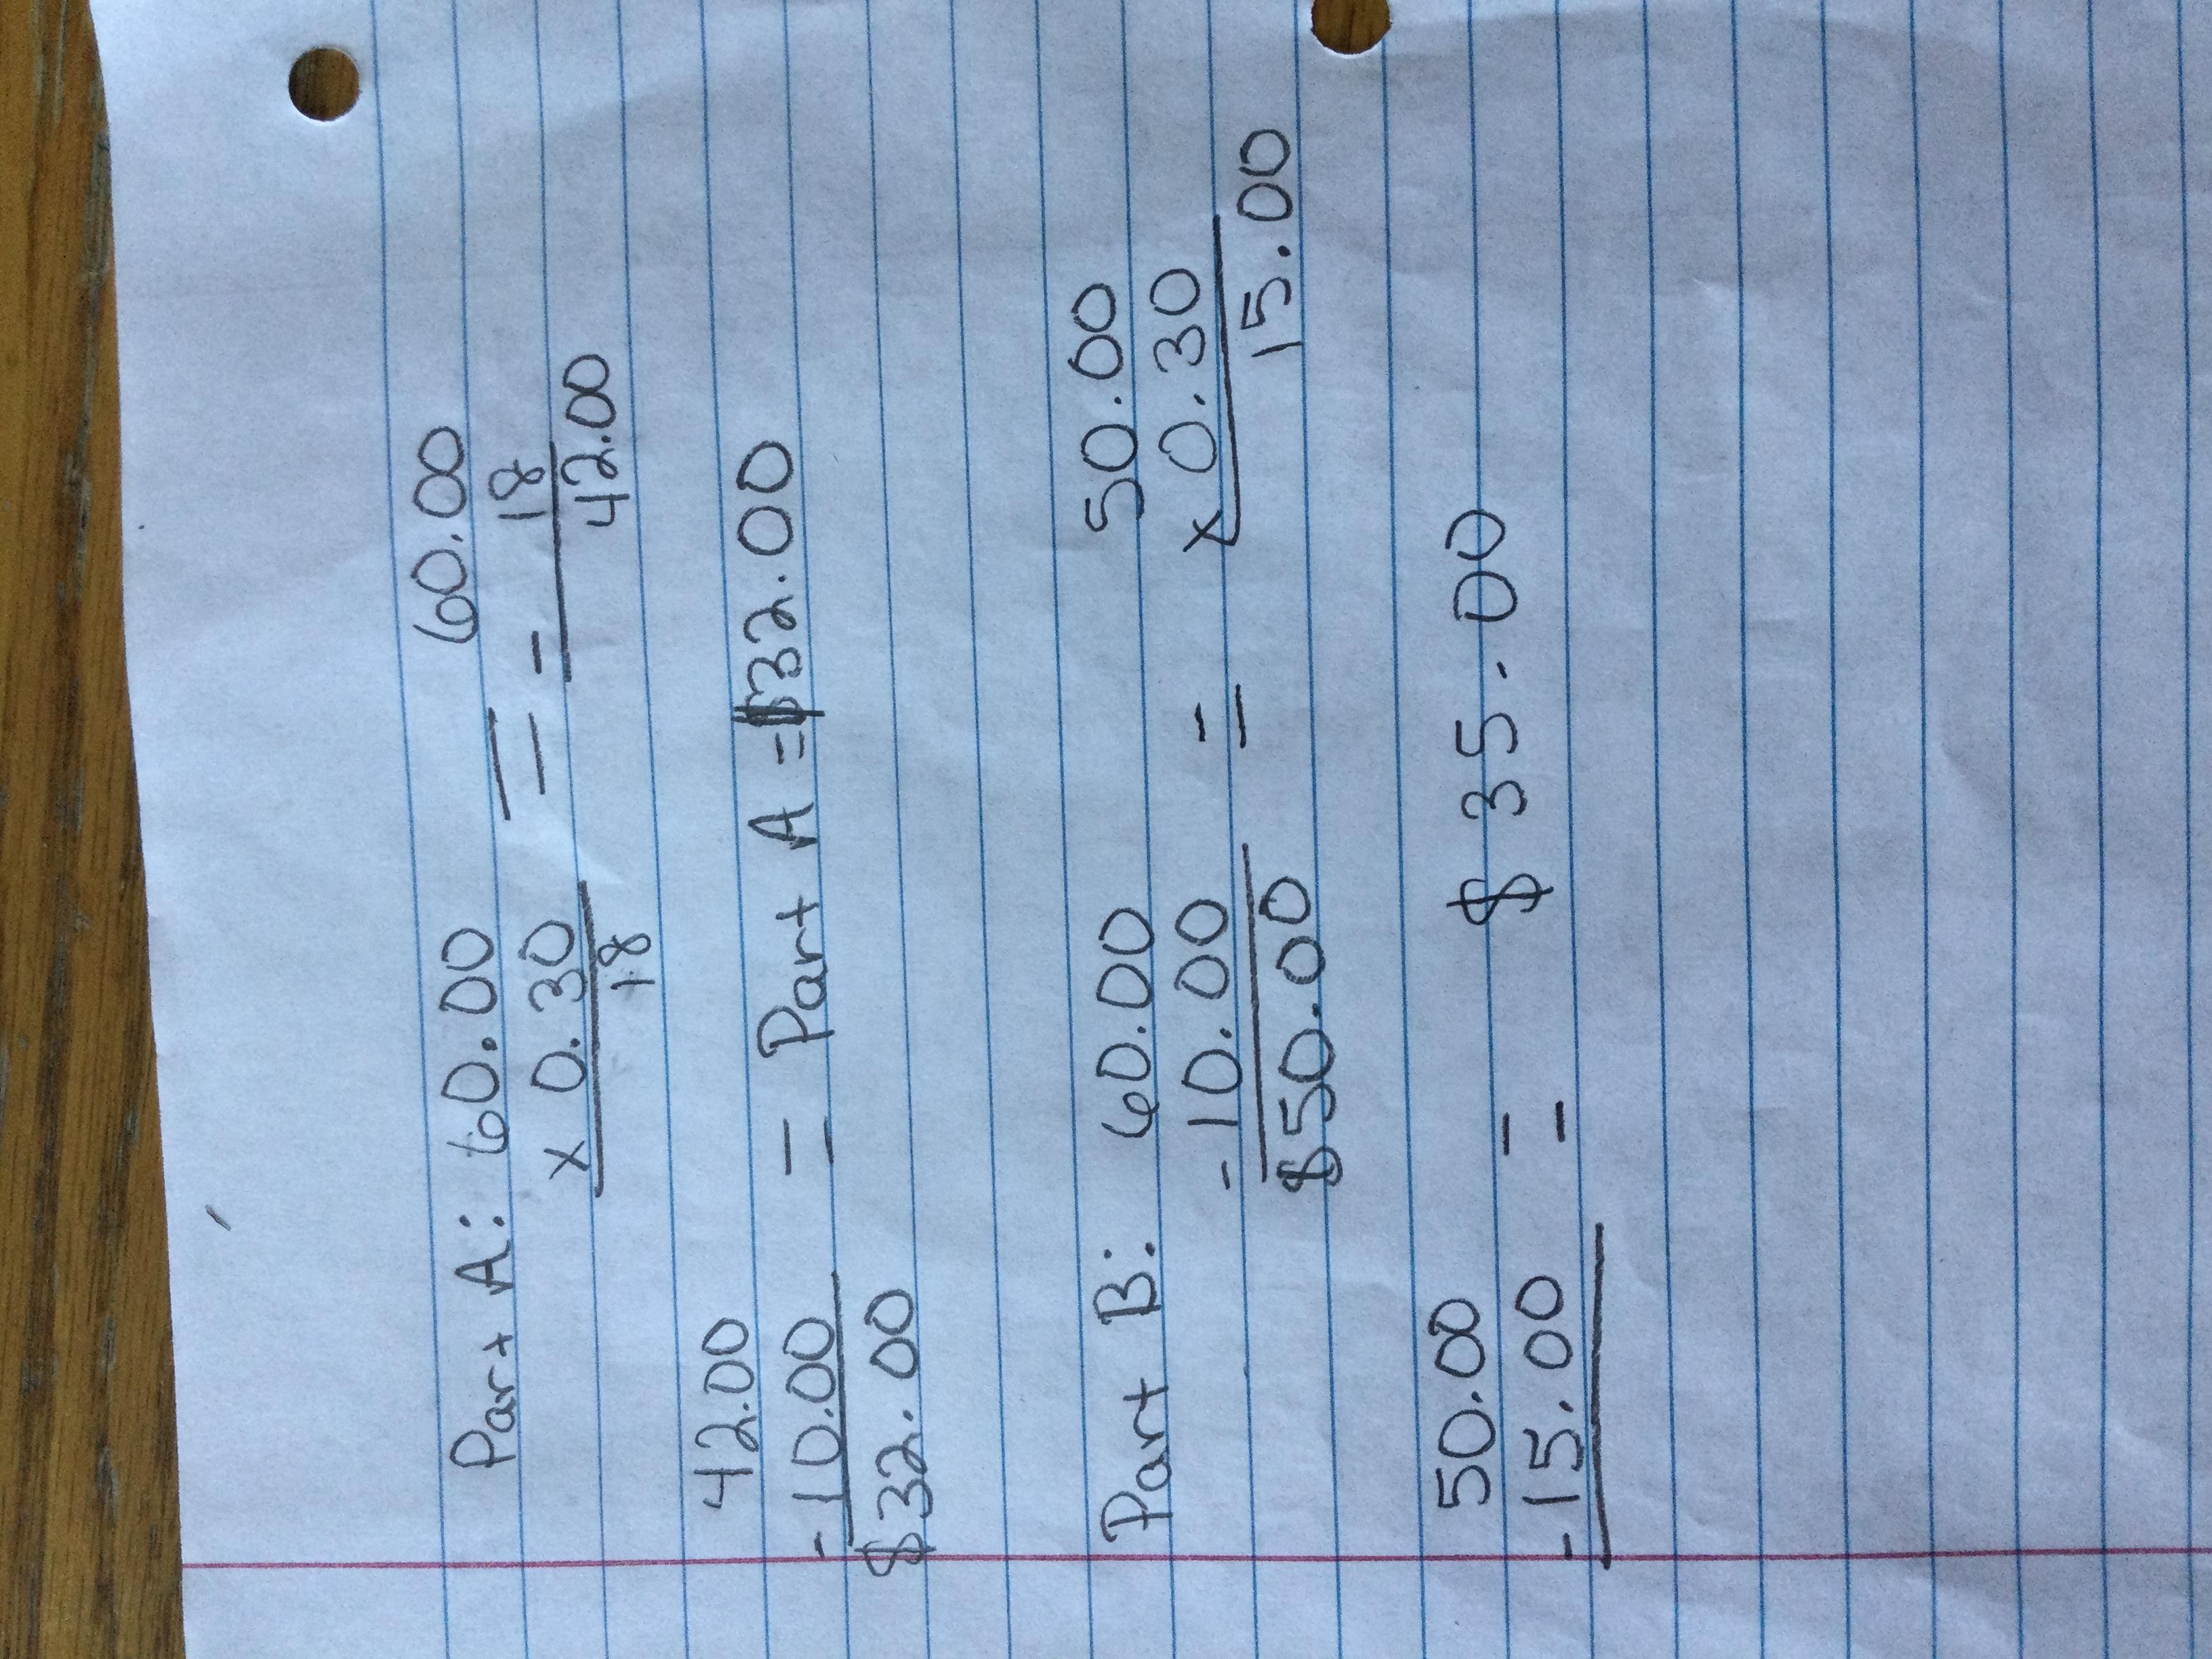 Part A: 60.00 60.00
x 0.30 = - 18
18 42.00
42.00
-10.00 = Part A = $32.00
$32.00
Part B: 60.00 50.00
-10.00 = x 0.30
$50.00 15.00
50.00
-15.00 = $35.00